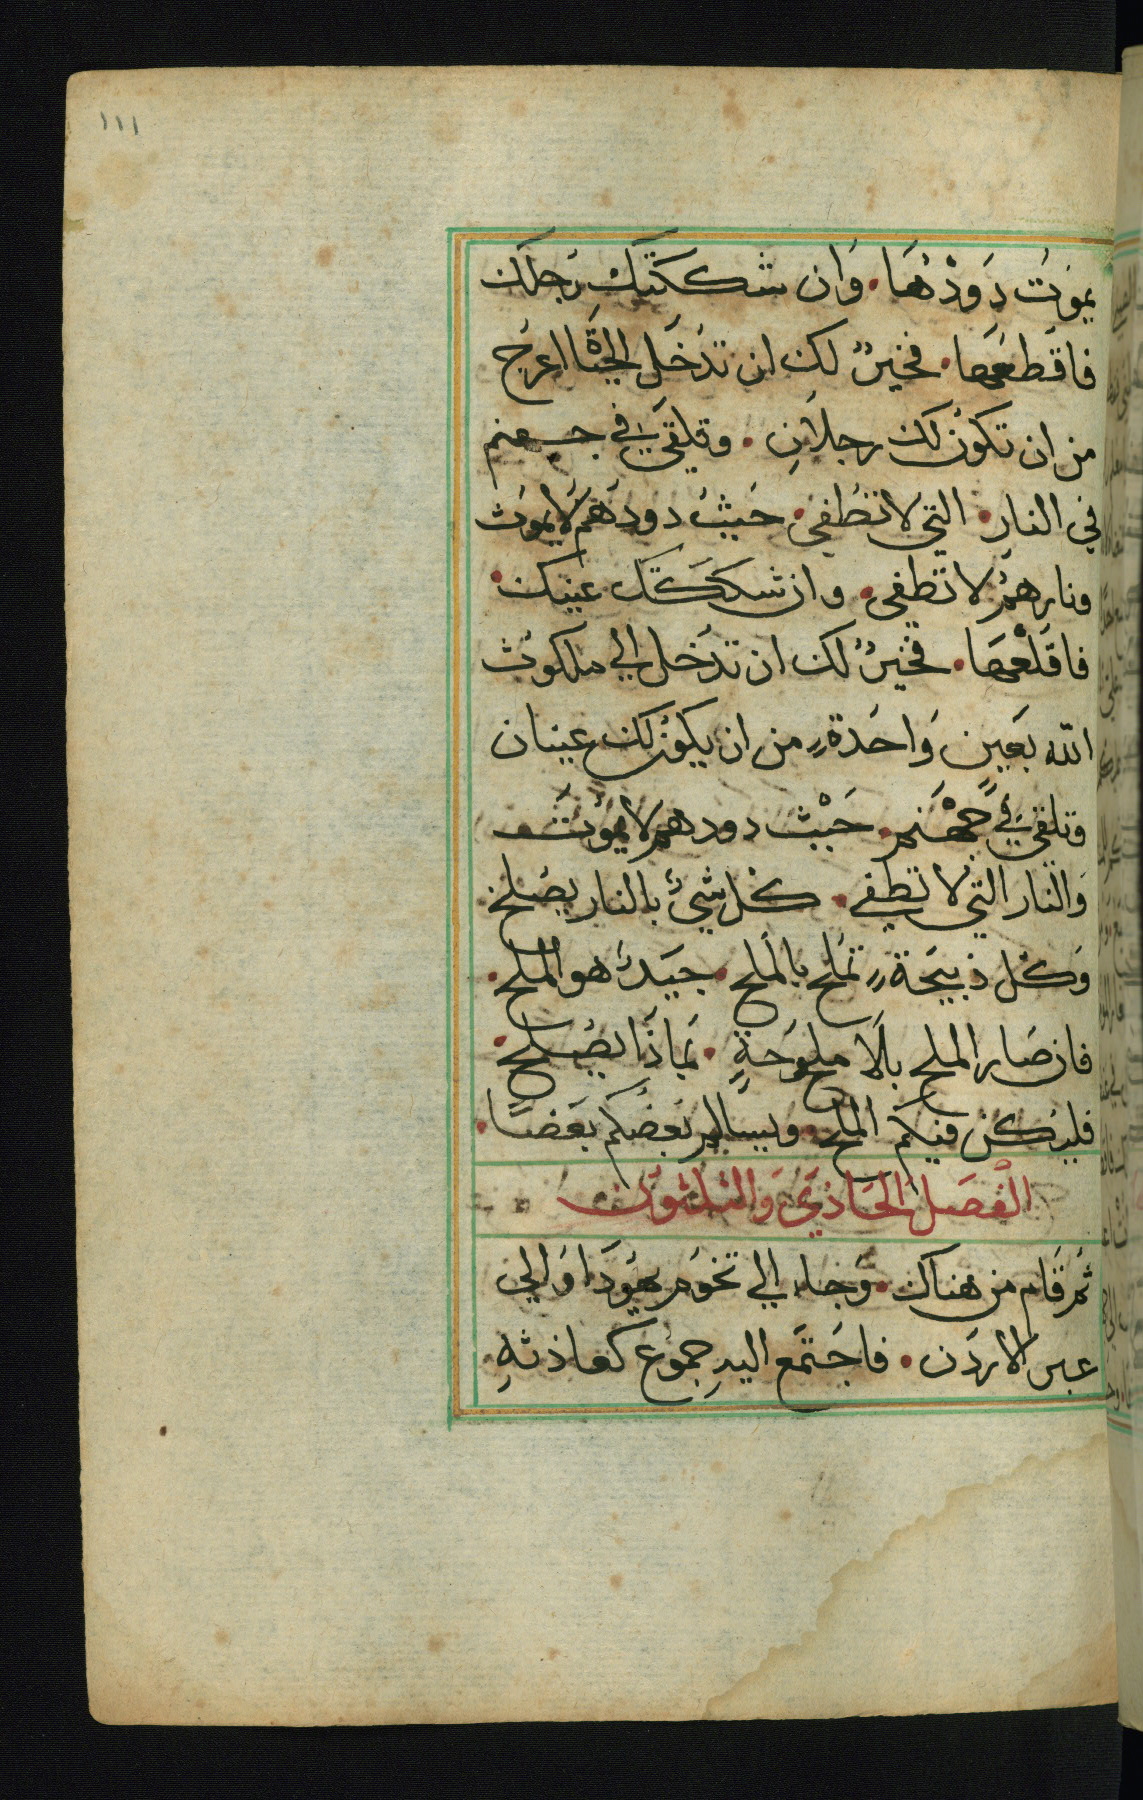 ١١١
يموت دودها. وان شككتك رجلك
فاقطعها. فخير لك ان تدخل الحياة اعرج
من ان تكون لك رجلان. وتلقى في جهنم
في النار. التي لا تطفى. حيث دودهم لا يموت
ونارهم لا تطفى. وان شككتك عينك.
فاقلعها. فخير لك ان تدخل الي ملكوت
الله بعين واحدة من ان يكون لك عينان
وتلقى في جهنم. حيث دودهم لا يموت
والنار التي لا تطفي. كل شيء بالنار يصلح.
وكل ذبيحة تملح بالملح. جيد هو الملح.
فان صار الملح بلا ملوحة. بماذا يصلح.
فليكن فيكم الملح. وليسالم بعضكم بعضا.
الفصل الحادي والثلثون
ثم قام من هناك. وجاء الي تخوم يهودا والي
عبر الاردن. فاجتمع اليه جموع كعادته